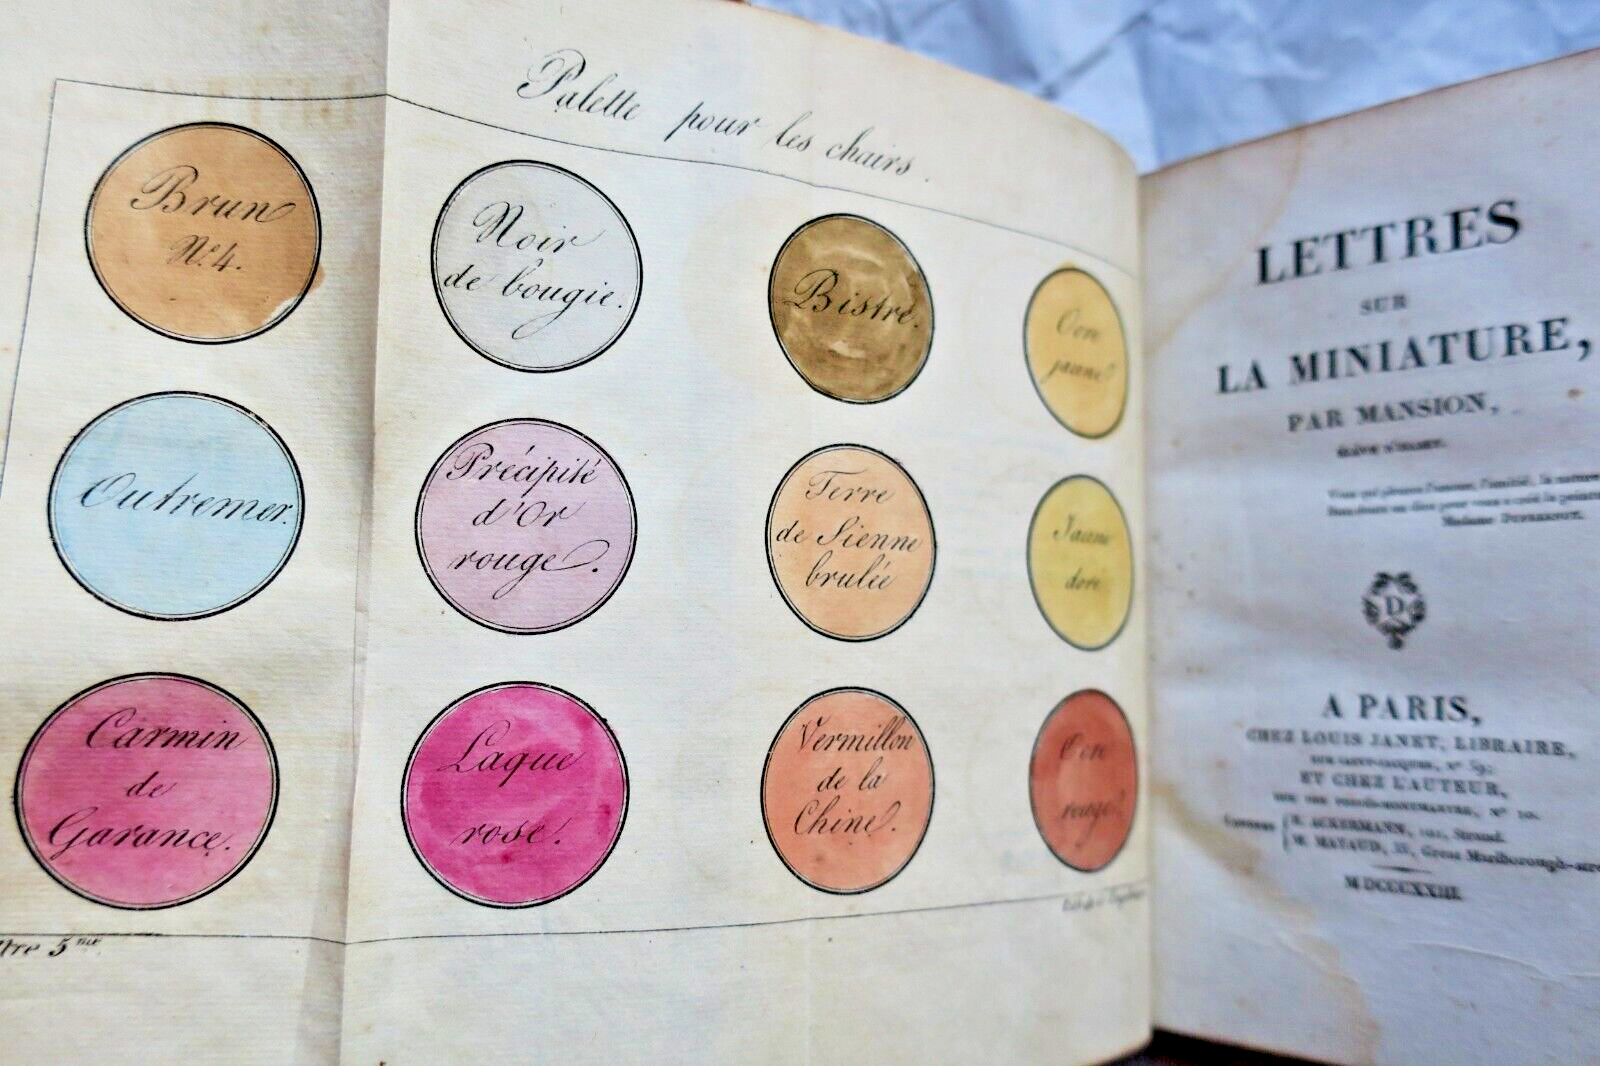 Palette pour les chairs.
Brun
Nº. 4.
Noir
de bougie.
Bistre.
Ocre
jaune
Outremer.
Précipité
d'Or
rouge.
Terre
de Sienne
brulée
Jaune
doré
Carmin
de
Garance.
Laque
rose.
Vermillon
de la
Chine.
Ocre
rouge
5me
LETTRES
SUR
LA MINIATURE,
PAR MANSION,
D
A PARIS,
CHEZ LOUIS JANET, LIBRAIRE,
RUE SAINT-JACQUES, Nº 59;
ET CHEZ L'AUTEUR,
Nº 10.
R. ACKERMANN, 101, Strand.
Great Marlborough-
MDCCCXXIII